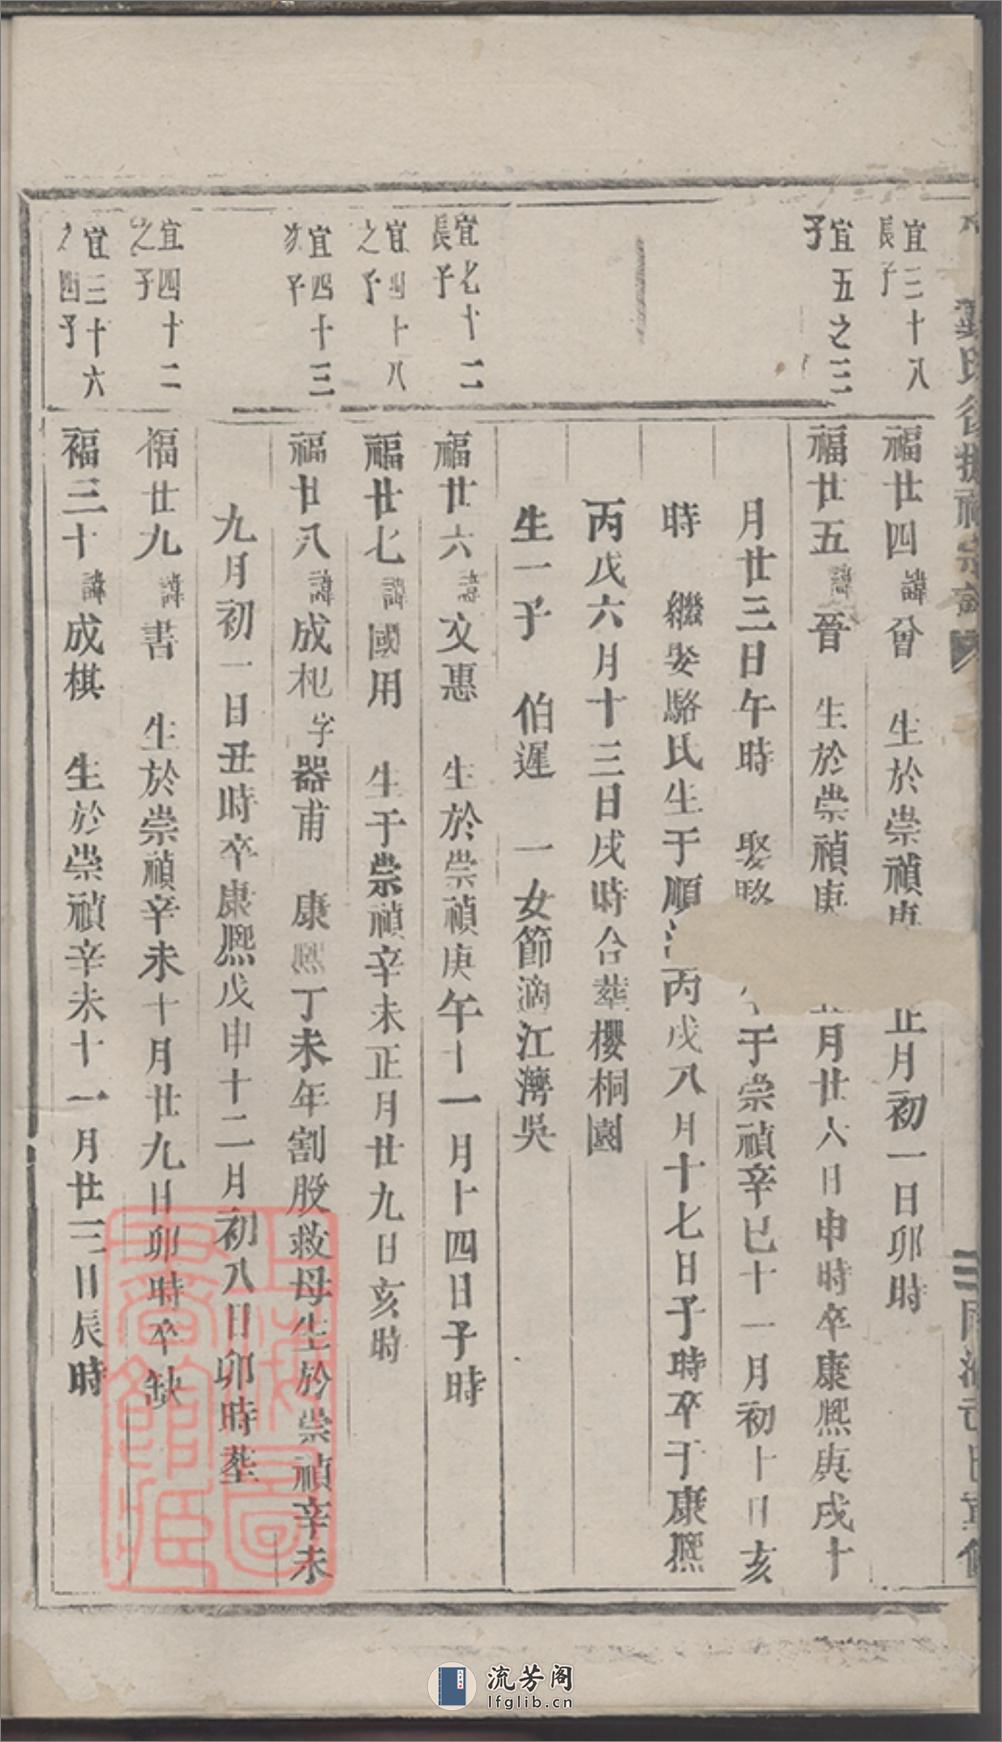 宜三十八
長子
福廿四諱曾 生於崇禎庚
正月初一日卯時
宜五之三
子
福廿五諱晉 生於崇禎庚
月廿八日申時卒康熙庚戌十
月廿三日午時 娶駱
于崇禎辛巳十一月初十日亥
時 繼娶駱氏生于順治丙戌八月十七日子時卒于康熙
丙戌六月十三日戌時合塟櫻桐園
生一子 伯遲 一女節滴江灣吳
宜七十二
長子
福廿六諱文惠 生於崇禎庚午十一月十四日子時
宜四十八
之子
福廿七諱國用 生于崇禎辛未正月廿九日亥時
宜四十三
次子
福廿八諱成杞字器甫 康熙丁未年割股救母生於崇禎辛未
九月初一日丑時卒康熙戊申十二月初八日卯時塟
宜四十二
之子
福廿九諱書 生於崇禎辛未十月廿九日卯時卒缺
宜三十六
之四子
福三十諱成棋 生於崇禎辛未十一月廿三日辰時
上海圖書館藏
流芳阁
lfglib.cn